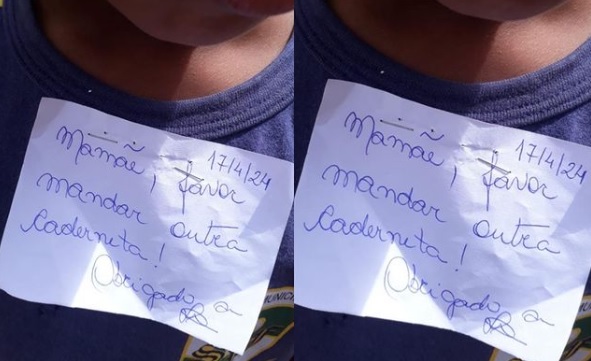 17/4/24
Mamãe, favor
mandar outra
Caderneta!
Obrigada
17/4/24
Mamãe, favor
mandar outra
Caderneta!
Obrigada